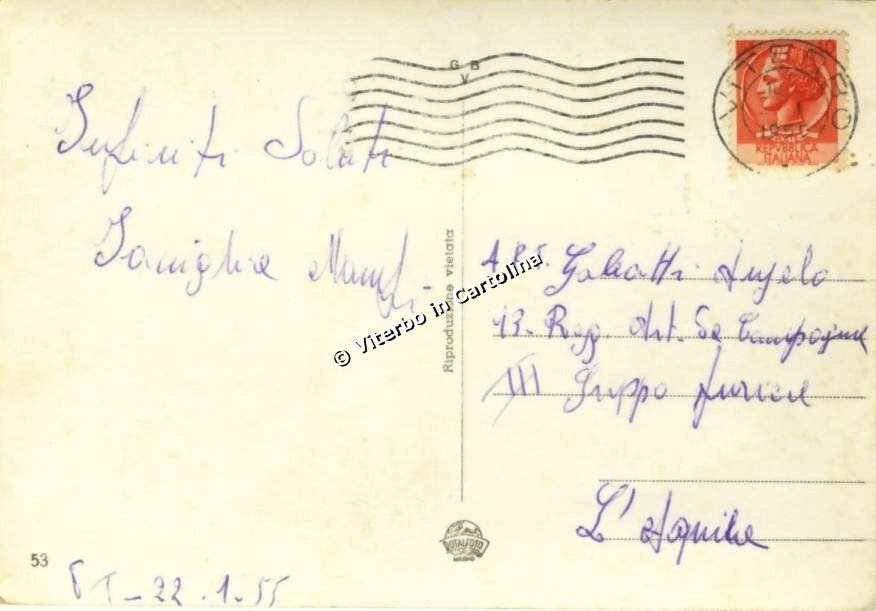 G B
V
VITERBO
1955
REPVBBLICA
ITALIANA
Infiniti Saluti
Famiglia
Art. Galiatti Angelo
13. Reg. Art. Da Campagna
III Gruppo furiere
L'Aquila
Riproduzione vietata
© Viterbo in Cartolina
ROTALFOTO
MILANO
53
VT - 22.1.55